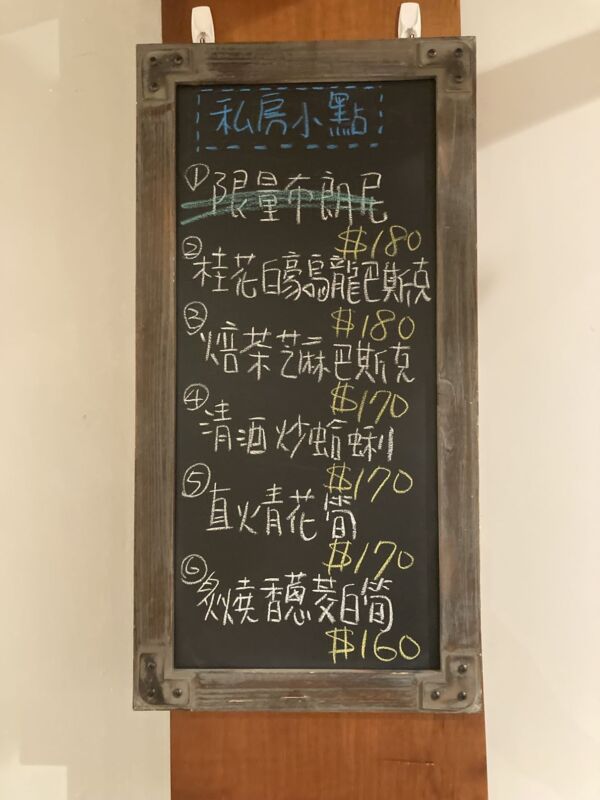 私房小點
①限量布朗尼
$180
②桂花白豪烏龍巴斯克
$180
③焙茶芝麻巴斯克
$170
④清酒炒蛤蜊
$170
⑤直火青花筍
$170
⑥炙燒香蔥茭白筍
$160